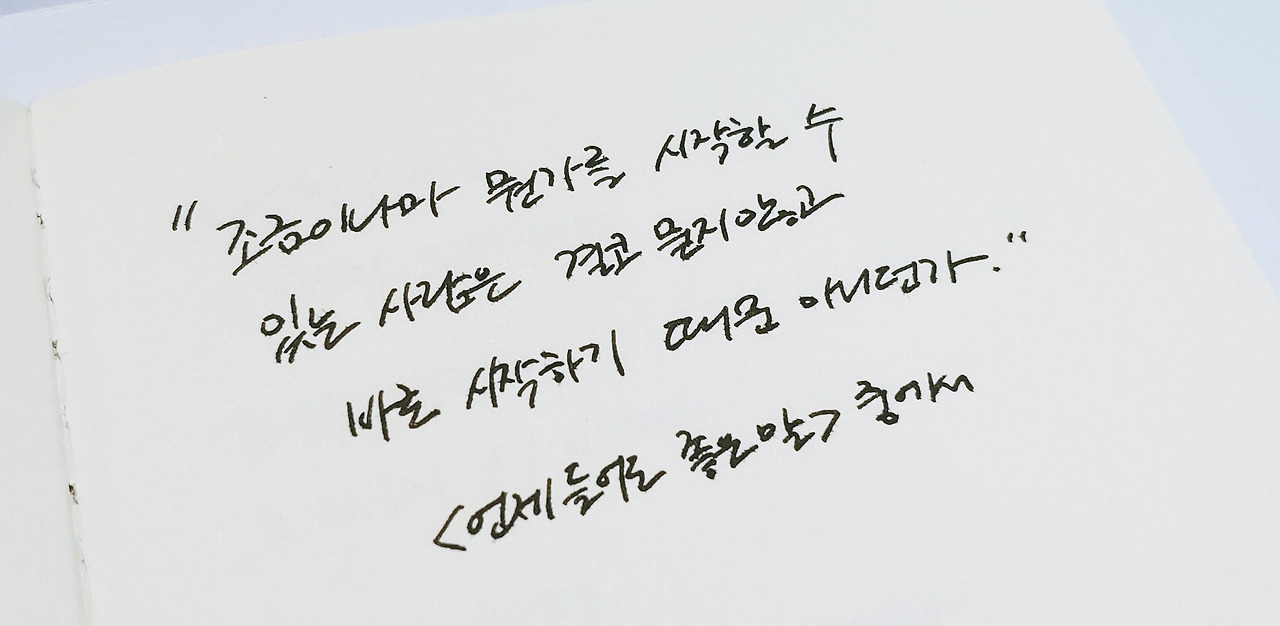 "조금이나마 뭔가를 시작할 수
있는 사람은 결코 묻지 않고
바로 시작하기 때문 아니던가."
<언제 들어도 좋은 말> 중에서